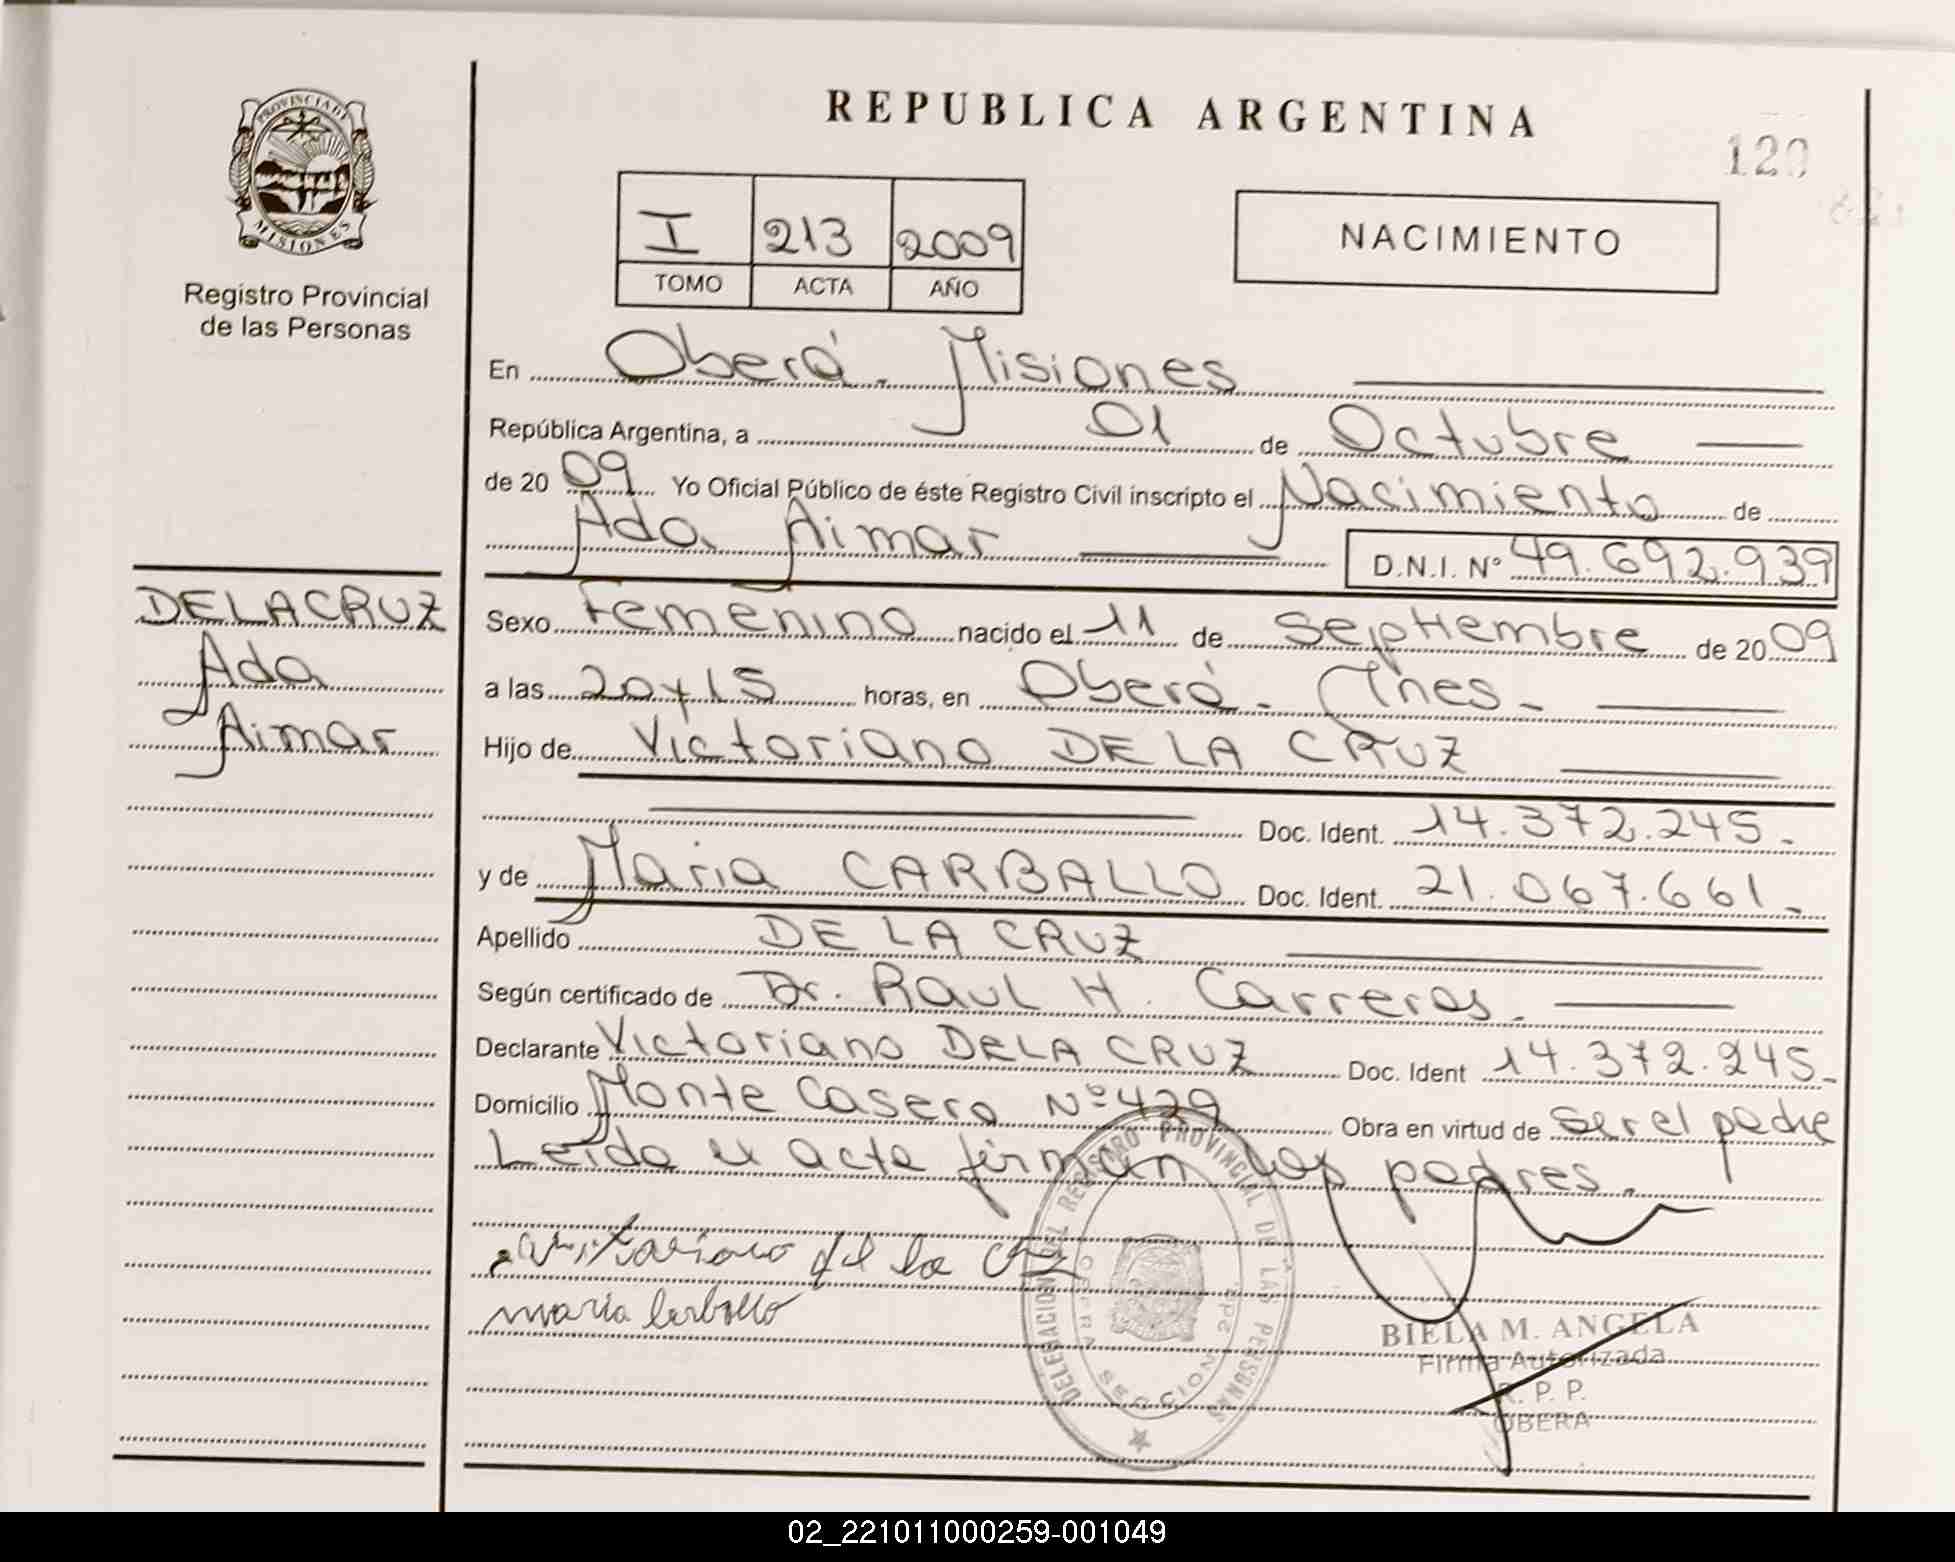 PROVINCIA DE
MISIONES
Registro Provincial
de las Personas
REPUBLICA ARGENTINA
120
I 213 2009
TOMO ACTA AÑO
NACIMIENTO
En Oberá - Misiones
República Argentina, a 01 de Octubre
de 20 09 Yo Oficial Público de éste Registro Civil inscripto el Nacimiento de
Ada Aimar D.N.I. Nº 49.692.939
DE LA CRUZ
Ada
Aimar
Sexo Femenino nacido el 11 de Septiembre de 20 09
a las 20 y 15 horas, en Oberá - Mnes -
Hijo de Victoriano DE LA CRUZ
Doc. Ident. 14.372.245.-
y de Maria CARBALLO Doc. Ident. 21.067.661.-
Apellido DE LA CRUZ
Según certificado de Dr. Raul H. Carreras -
Declarante Victoriano DE LA CRUZ Doc. Ident 14.372.245.-
Domicilio Monte Casero Nº 429 Obra en virtud de ser el padre
Leida el acta firman los padres.-
de la
maria Carballo
DELEGACION DEL REGISTRO PROVINCIAL DE LAS PERSONAS
SECCION
BIELA M. ANGELA
Firma Autorizada
R. P. P.
OBERA
02_221011000259-001049